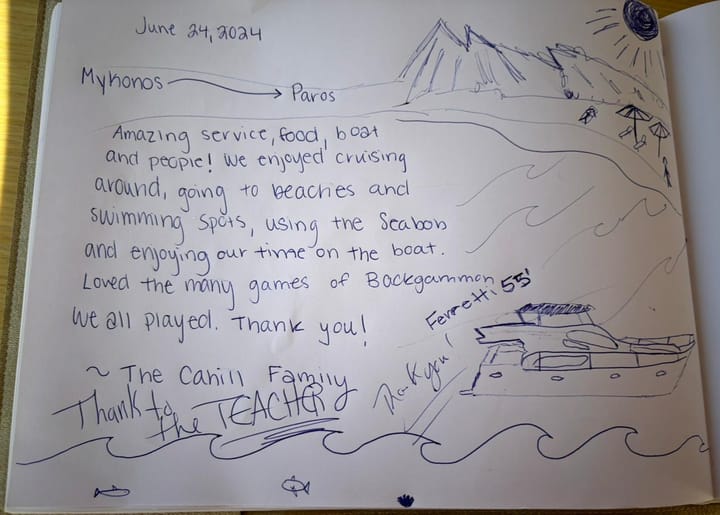 June 24, 2024
Mykonos Paros
Amazing service, food, boat
and people! We enjoyed cruising
around, going to beaches and
swimming spots, using the Seabob
and enjoying our time on the boat.
Loved the many games of Backgammon
we all played. Thank you!
~ The Cahill Family
Thank to
the TEACHER
Thank you!
Ferretti 55'